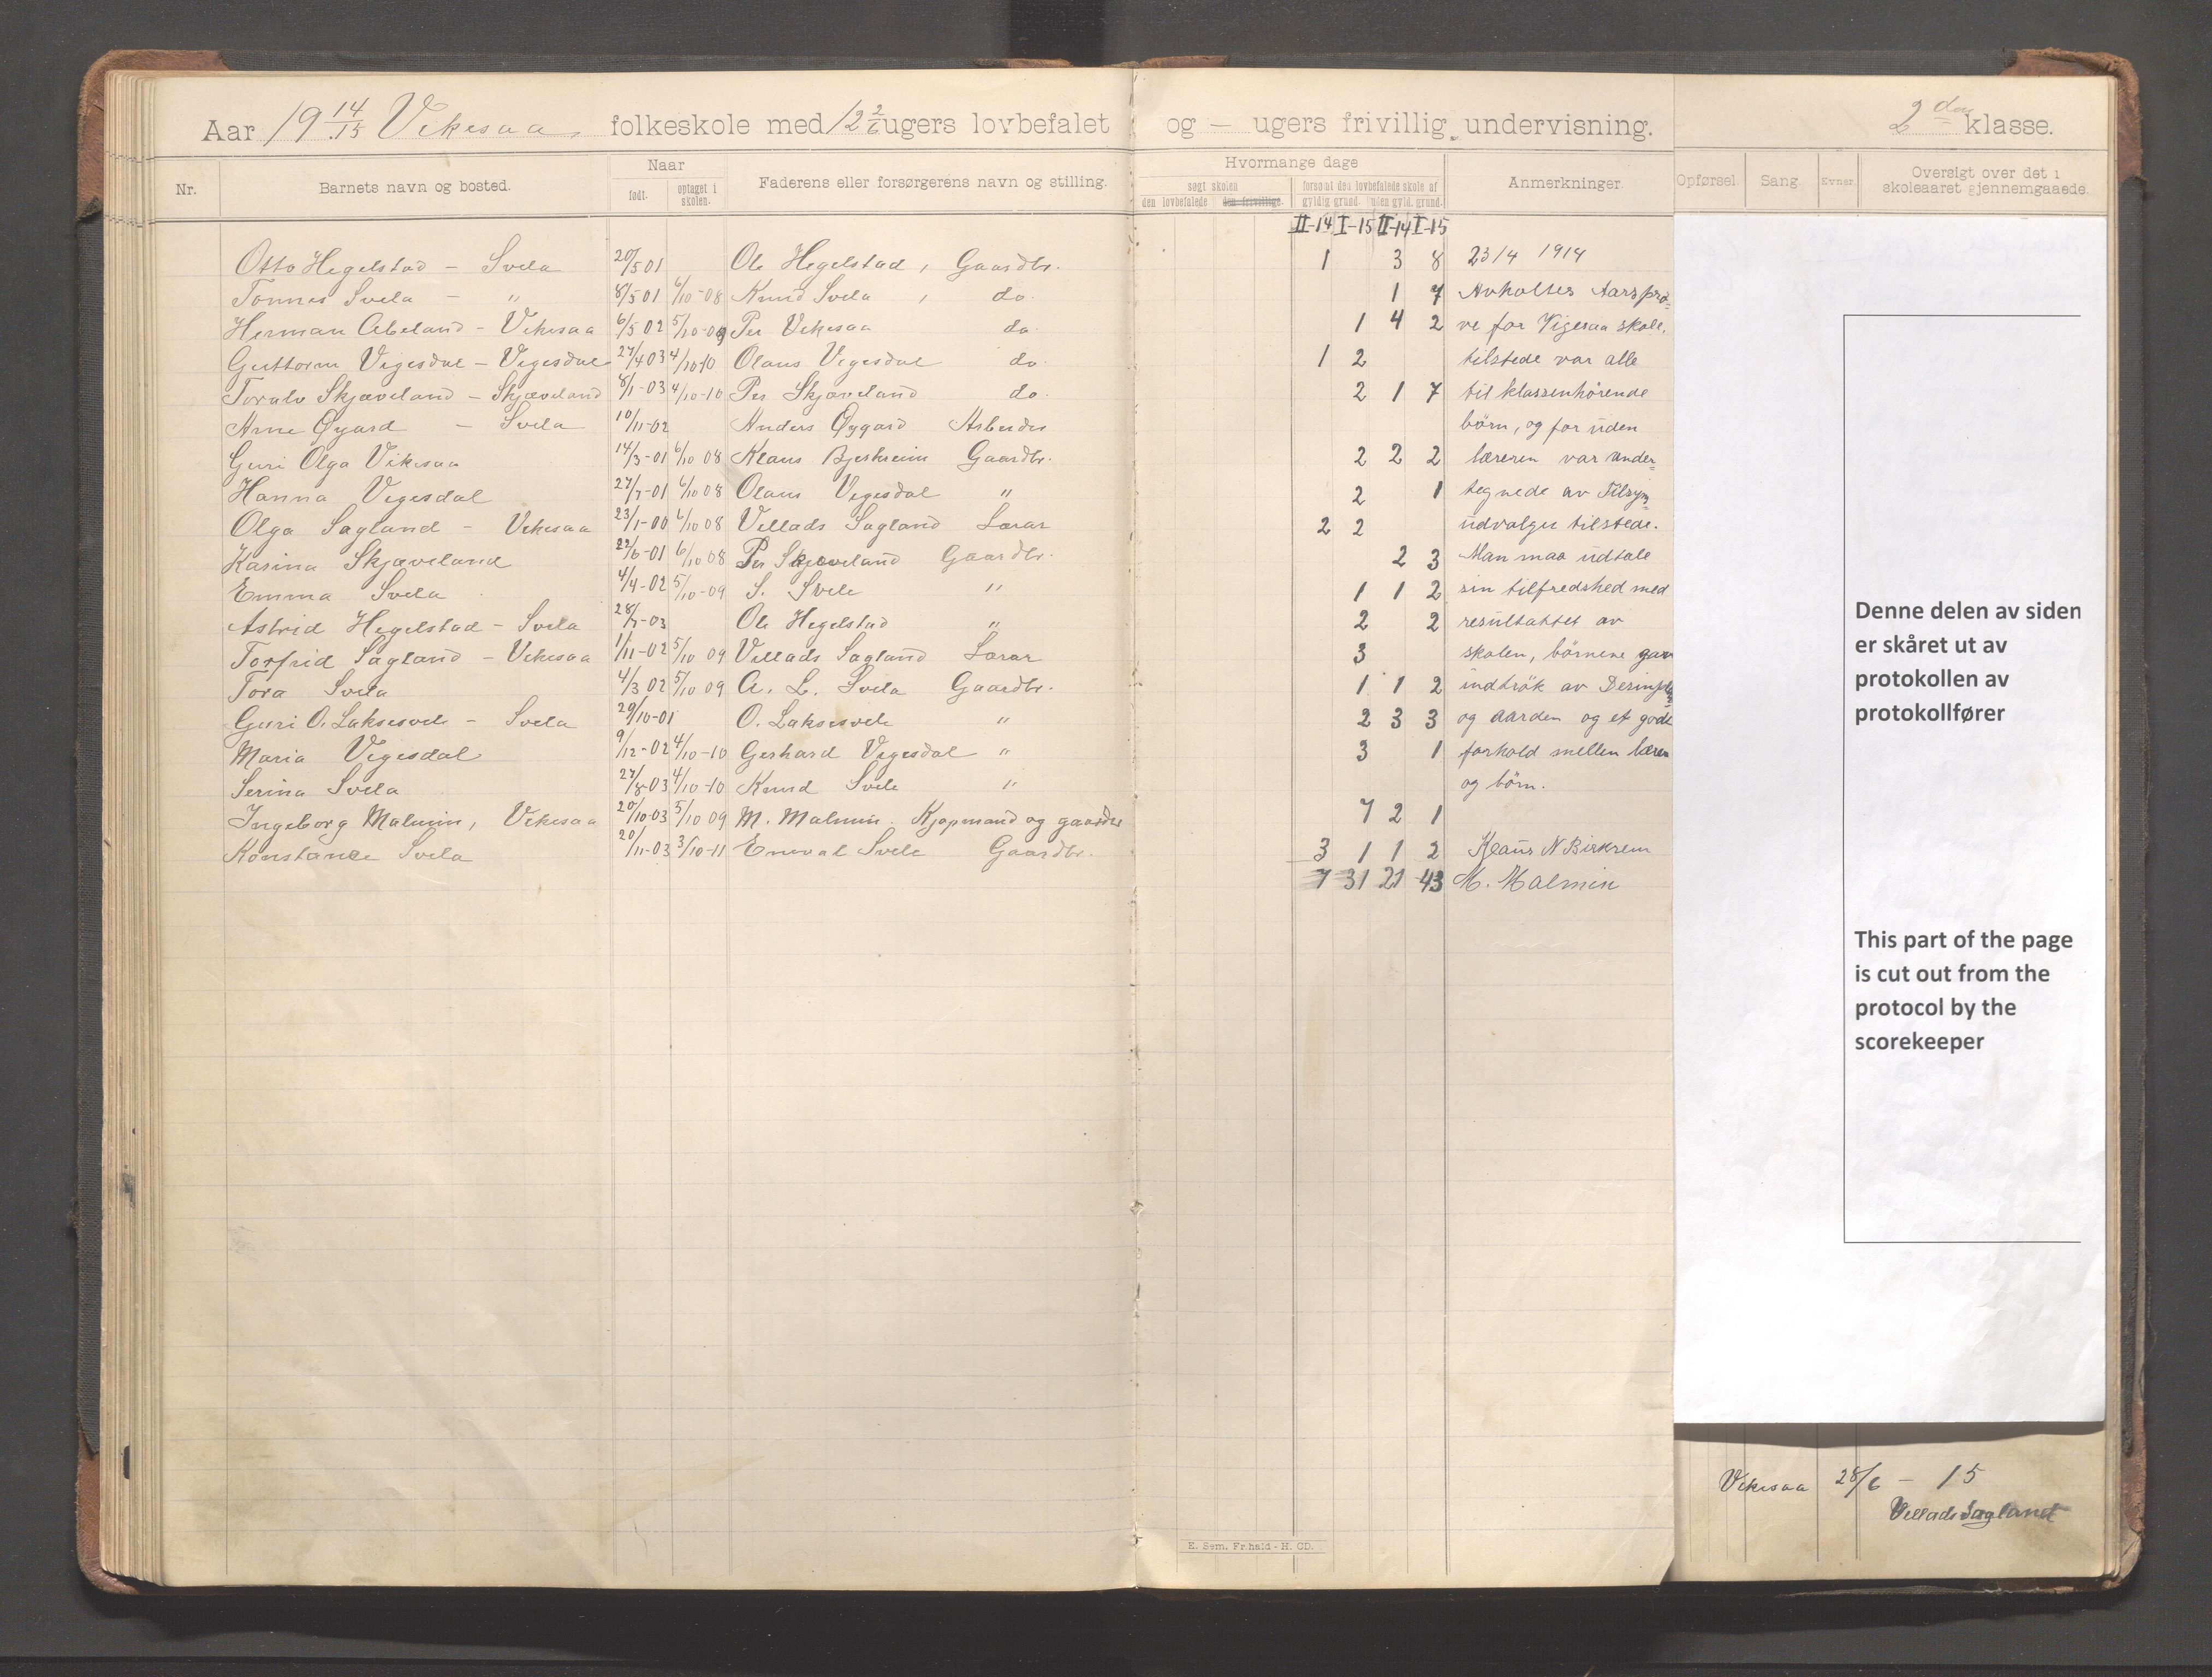 Aar 19 14/15 Vikesaa, folkeskole med 12 2/6 ugers lovbefalet og — ugers frivillig undervisning. 2 den klasse.
Nr. Barnets navn og bosted. Naar født. optaget i skolen. Faderens eller forsørgerens navn og stilling. Hvormange dage søgt skolen den lovbefalede den frivillige. forsømt den lovbefalede skole af gyldig grund. uden gyld. grund. Anmerkninger. Opførsel. Sang. Evner. Oversigt over det i skoleaaret gjennemgaaede.
II-14 I-15 II-14 I-15
Otto Hegelstad – Svela 20/5 01 Ole Hegelstad, Gaardbr. 1 3 8 23/4 1914
Tønnes Svela – " 8/5 01 6/10-08 Knud Svela , do 1 7 Avholtes Aarsprø=
Herman Abeland – Vikesaa 6/5 02 5/10-09 Per Vikesaa do 1 4 2 ve for Vigesaa skole,
Guttorm Vigesdal – Vigesdal 27/4 03 4/10 10 Olaus Vigesdal do 1 2 tilstede var alle
Toralv Skjæveland – Skjæveland 8/1-03 4/10-10 Per Skjæveland do. 2 1 7 til klassenhørende
Arne Øyard – Svela 10/11-02 Anders Øygard Arbeider børn, og for uden
Guri Olga Vikesaa 14/3-01 6/10 08 Klaus Bjerkreim Gaardbr. 2 2 2 læreren var under=
Hanna Vigesdal 27/7-01 6/10 08 Olaus Vigesdal " 2 1 tegnede av Tilsyns
Olga Sagland – Vikesaa 23/1-00 6/10 08 Villads Sagland Lærar 2 2 udvalget tilstede.
Karina Skjæveland 22/6-01 6/10 08 Per Skjæveland Gaardbr. 2 3 Man maa udtale
Emma Svela 4/4-02 5/10-09 S. Svele " 1 1 2 sin tilfredshed med
Astrid Hegelstad – Svela 28/7-03 Ole Hegelstad " 2 2 resultattet av
Torfrid Sagland – Vikesaa 1/11-02 5/10 09 Villads Sagland Lærar 3 skolen, børnene gav
Tora Svela 4/3 02 5/10 09 A. L. Svela Gaardbr. 1 1 2 indtrøk av
Guri O. Laksesvele – Svela 29/10-01 O. Laksesvele " 2 3 3 og aarden og et godt
Maria Vigesdal 9/12-02 4/10-10 Gerhard Vigesdal " 3 1 forhold mellen lærer
Serina Svela 27/8-03 4/10-10 Knud Svele " og børn.
Ingeborg Malmin, Vikesaa 20/10-03 5/10 09 M. Malmin. Kjøpmand og gaardbr 7 2 1
Konstance Svela 20/11-03 3/10-11 Enevald Svele Gaardbr. 3 1 1 2 Klaus N Birkrem
7 31 21 43 M. Malmin
Denne delen av siden
er skåret ut av
protokollen av
protokollfører
This part of the page
is cut out from the
protocol by the
scorekeeper
Vikesaa 28/6 – 15
Villads Sagland
E. Sem. Fr.hald - H. CD.